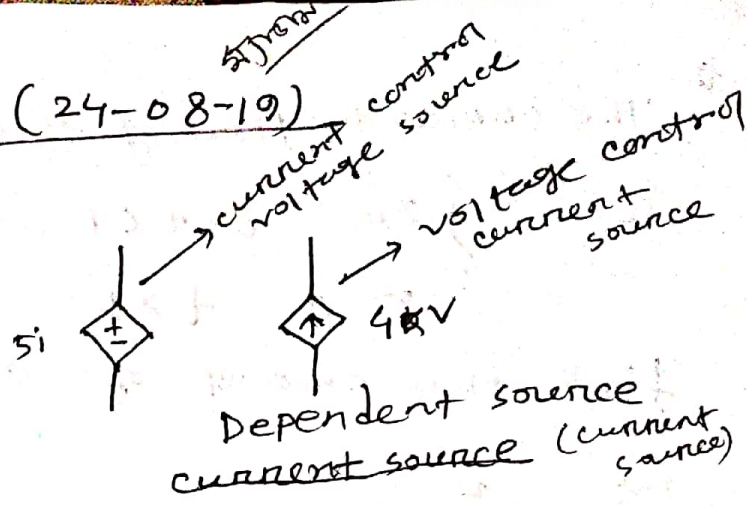 (24-08-19)
current control
voltage source
voltage control
current
source
5i
4V
Dependent source
current source (current
source)